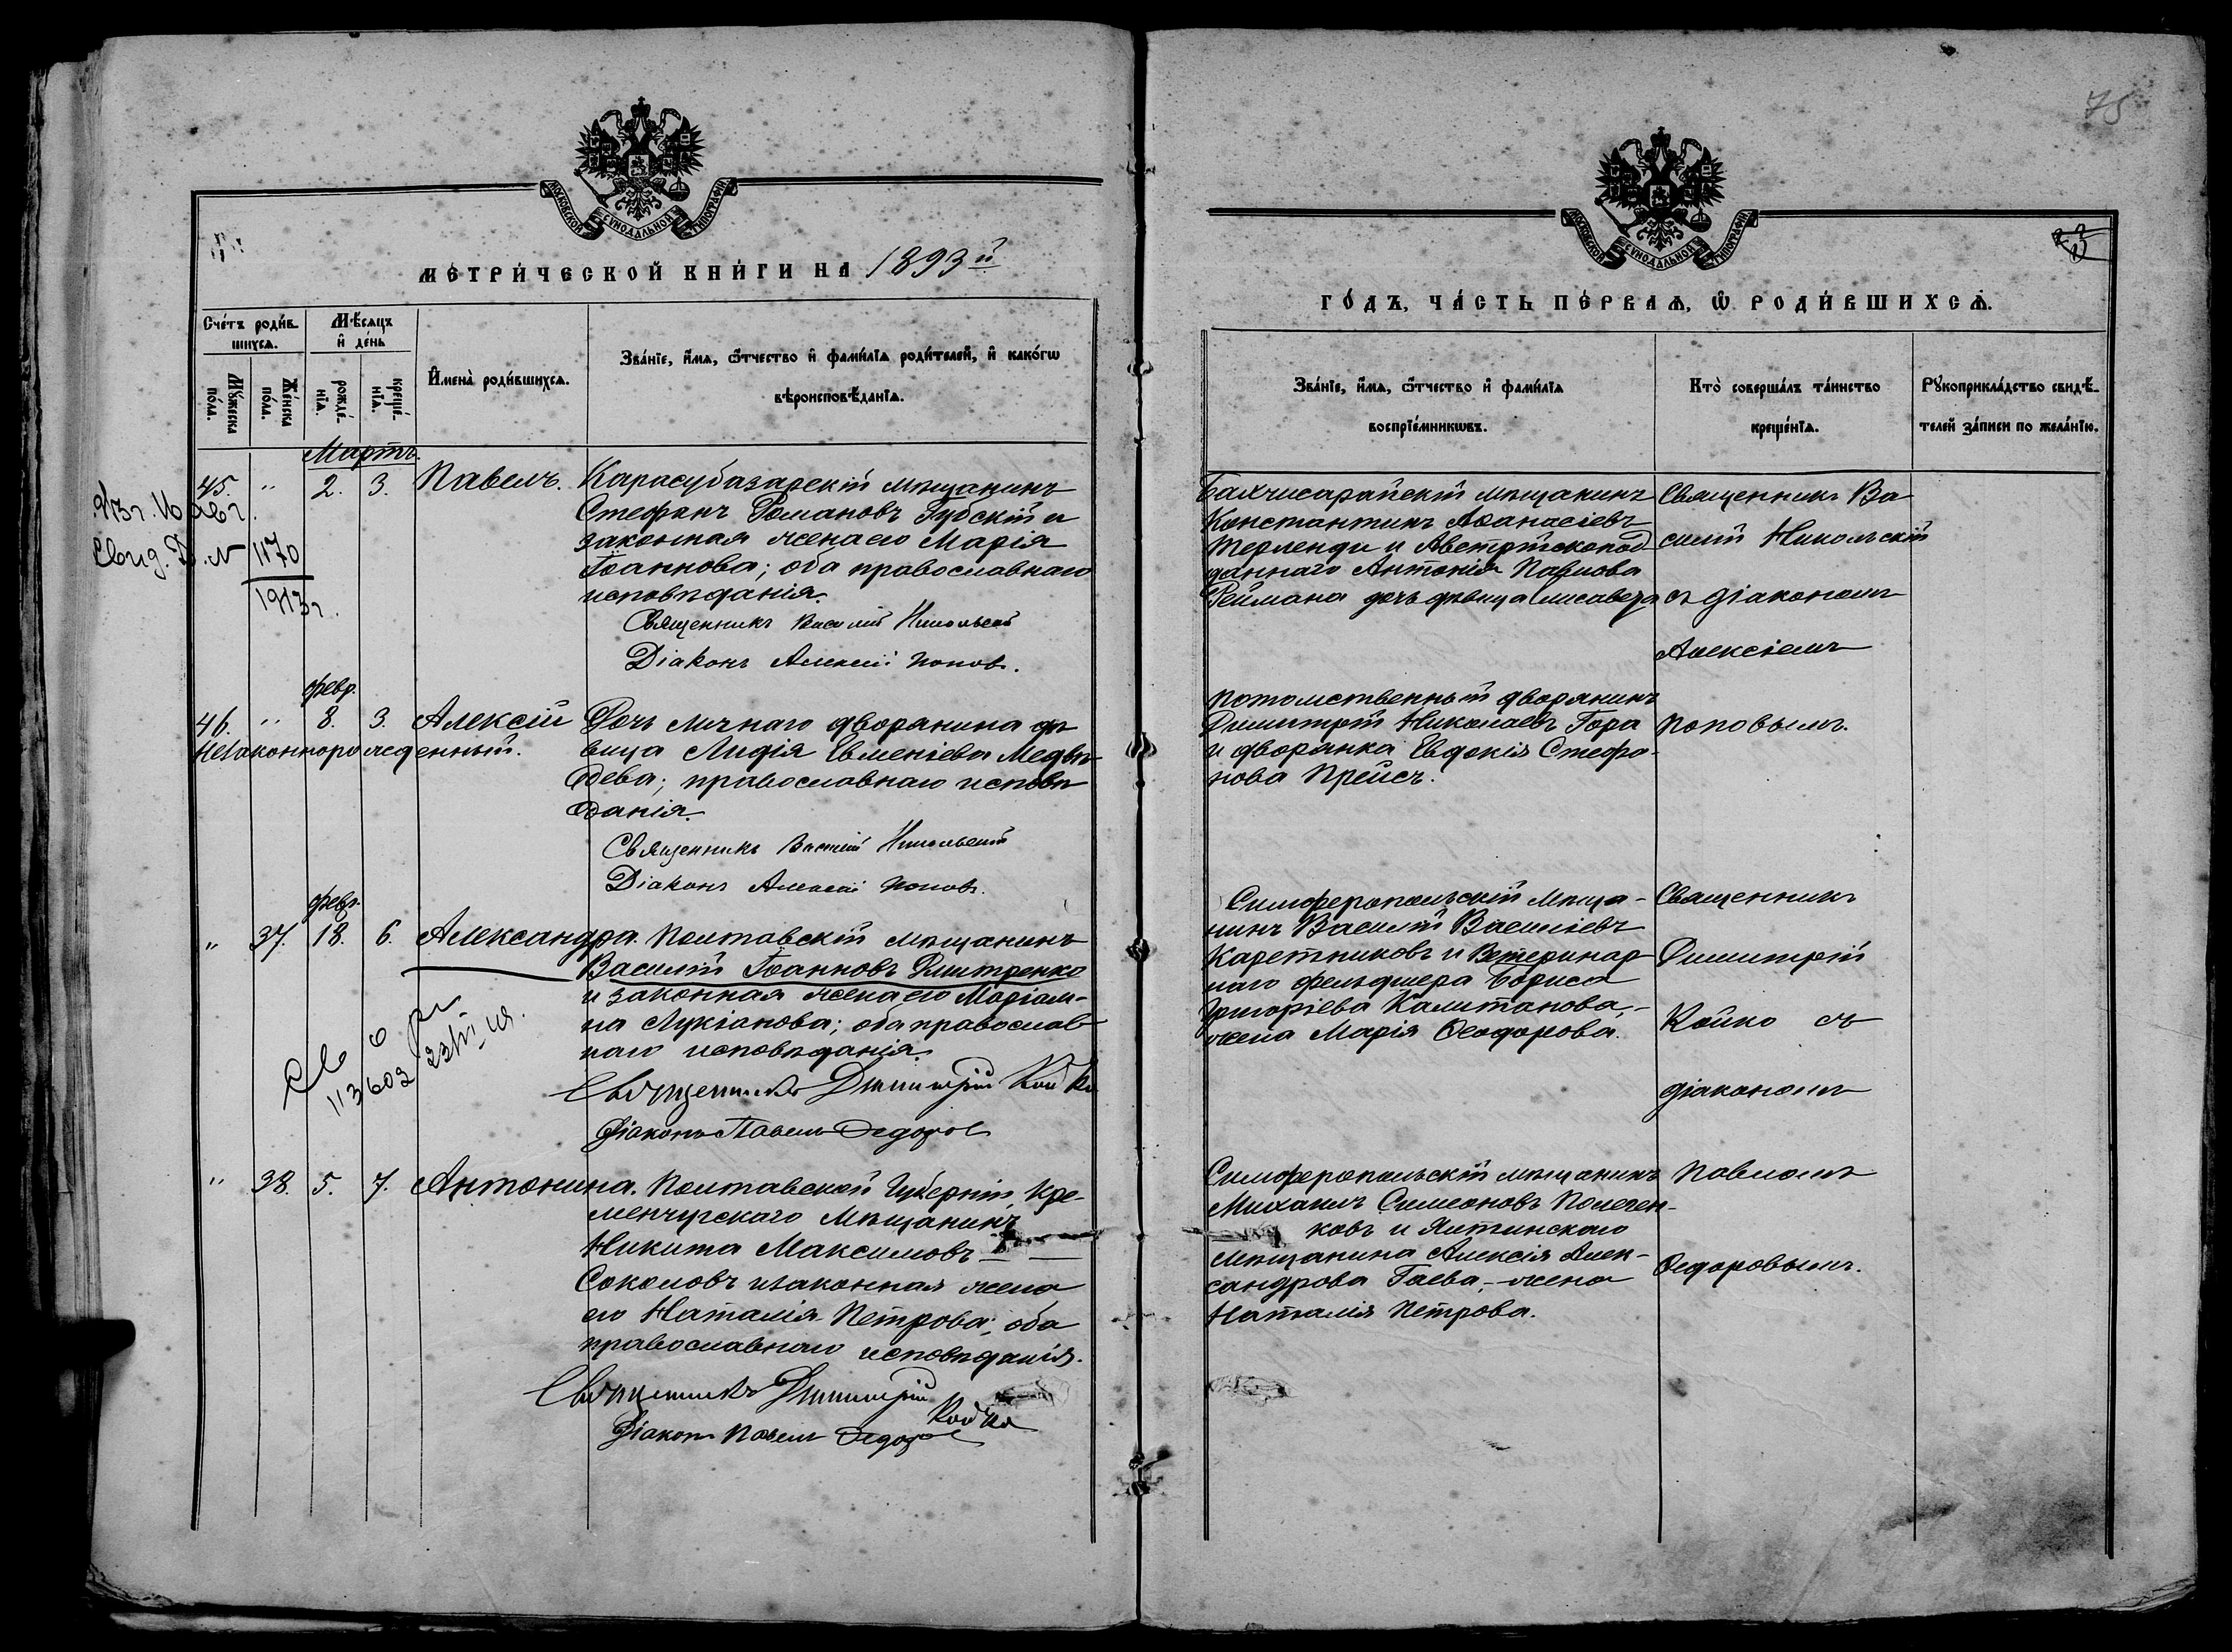 75
МОСКОВСКОЙ СУНОДАЛЬНОЙ ТИПОГРАФІИ
МЕТРИЧЕСКОЙ КНИГИ НА 1893й
Счетъ родившихся.
Мужеска пола.
Женска пола.
Мѣсяцъ и день
рожденія.
крещенія.
Имена родившихся.
Званіе, имя, отчество и фамилія родителей, и какогω
вѣроисповѣданія.
Мартъ.
45. " 2. 3. Павелъ. Карасубазарскій мѣщанинъ
Стефанъ Романовъ Зубскій и
законная жена его Марія
Іоаннова; оба православнаго
исповѣданія.
Священникъ Василій Никольскій
Діаконъ Алексій Попов.
913 г. 16 авг.
Свид. № 1170
1913 г.
февр.
46. " 8. 3. Алексій Дочь личнаго дворянина дѣ
Незаконнорожденный. вица Лидія Евменіева Медвѣ-
дева; православнаго исповѣ
данія.
Священникъ Василій Никольскій
Діаконъ Алексій Попов.
февр.
" 37. 18. 6. Александра. Полтавскій мѣщанинъ
Василій Іоанновъ Дмитренко
и законная жена его Маріам-
на Лукіанова; оба православ-
наго исповѣданія.
113602
Священникъ Димитрій Койко
Діаконъ Павелъ Федоров
" 38. 5. 7. Антонина. Полтавской Губерніи, Кре-
менчугскаго Мѣщанинъ
Никита Максимовъ
Соколовъ и законная жена
его Наталія Петрова; оба
православнаго исповѣданія.
Священникъ Димитрій Койко
Діаконъ Павелъ Федоров
МОСКОВСКОЙ СУНОДАЛЬНОЙ ТИПОГРАФІИ
ГОДЪ, ЧАСТЬ ПЕРВАЯ, Ѿ РОДИВШИХСЯ.
Званіе, имя, отчество и фамилія
воспріемникωвъ.
Кто совершалъ таинство
крещенія.
Рукоприкладство свидѣ-
телей записи по желанію.
Бахчисарайскій мѣщанинъ
Константинъ Аѳанасіевъ
Терленди и Австрійскопод-
даннаго Антонія Павлова
Реймана дочь дѣвица Елисавета
Священникъ Ва
силій Никольскій
съ діакономъ
Алексіемъ
Поповымъ.
потомственный дворянинъ
Димитрій Николаевъ Гора
и дворянка Евдокія Стефа-
нова Прейсъ.
Симферопольскій мѣща-
нинъ Василій Василіевъ
Каретниковъ и Ветеринар-
наго фельдшера Бориса
Григоріева Калитанова,-
жена Марія Ѳеодорова.
Священникъ
Димитрій
Койко съ
діакономъ
Павломъ
Ѳедоровымъ.
Симферопольскій мѣщанинъ
Михаилъ Симеоновъ
ковъ и Ялтинскаго
мѣщанина Алексія Алек-
сандрова Гаева,- жена
Наталія Петрова.